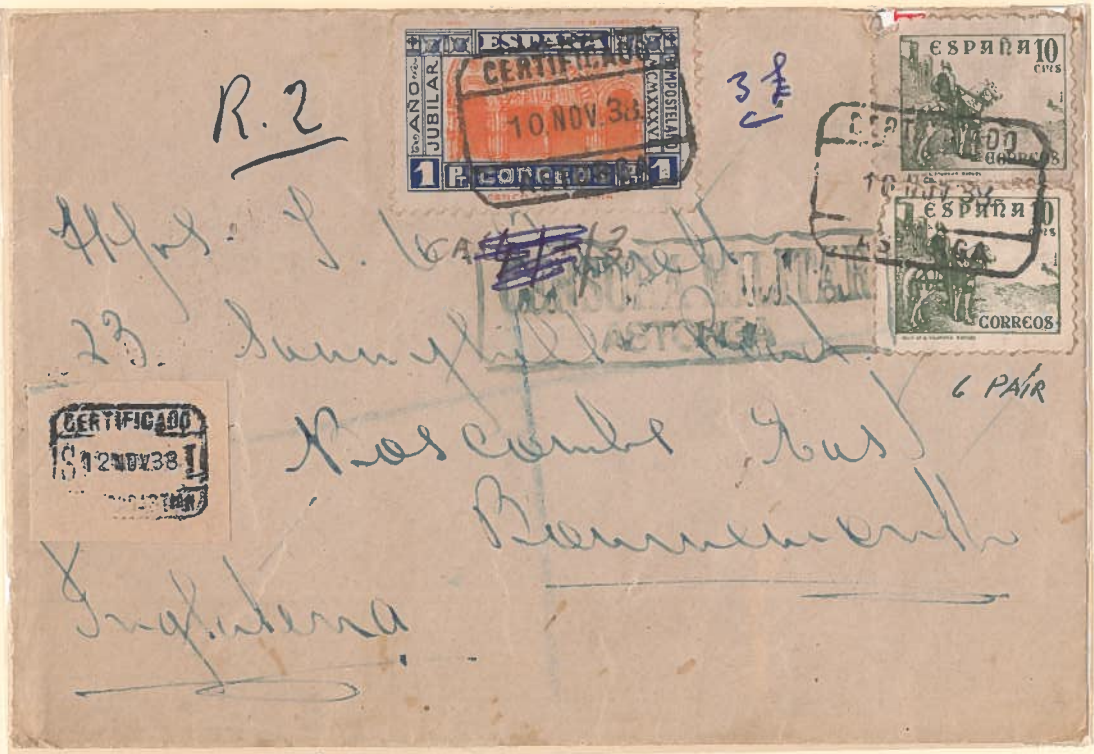 R.2
ESPAÑA
AÑO
JUBILAR
COMPOSTELANO
MCMXXXVII
1 Pta CORREOS 1
CERTIFICADO
10 NOV. 38
ASTORGA
3 £
ESPAÑA 10
CTMS
CORREOS
CERTIFICADO
10 NOV 38
ASTORGA
ESPAÑA 10
CTMS
CORREOS
CENSURA MILITAR
ASTORGA
23. Sunnyhill Road
6 PAIR
CERTIFICADO
12 NOV. 38
Boscombe East
Bournemouth
Inglaterra